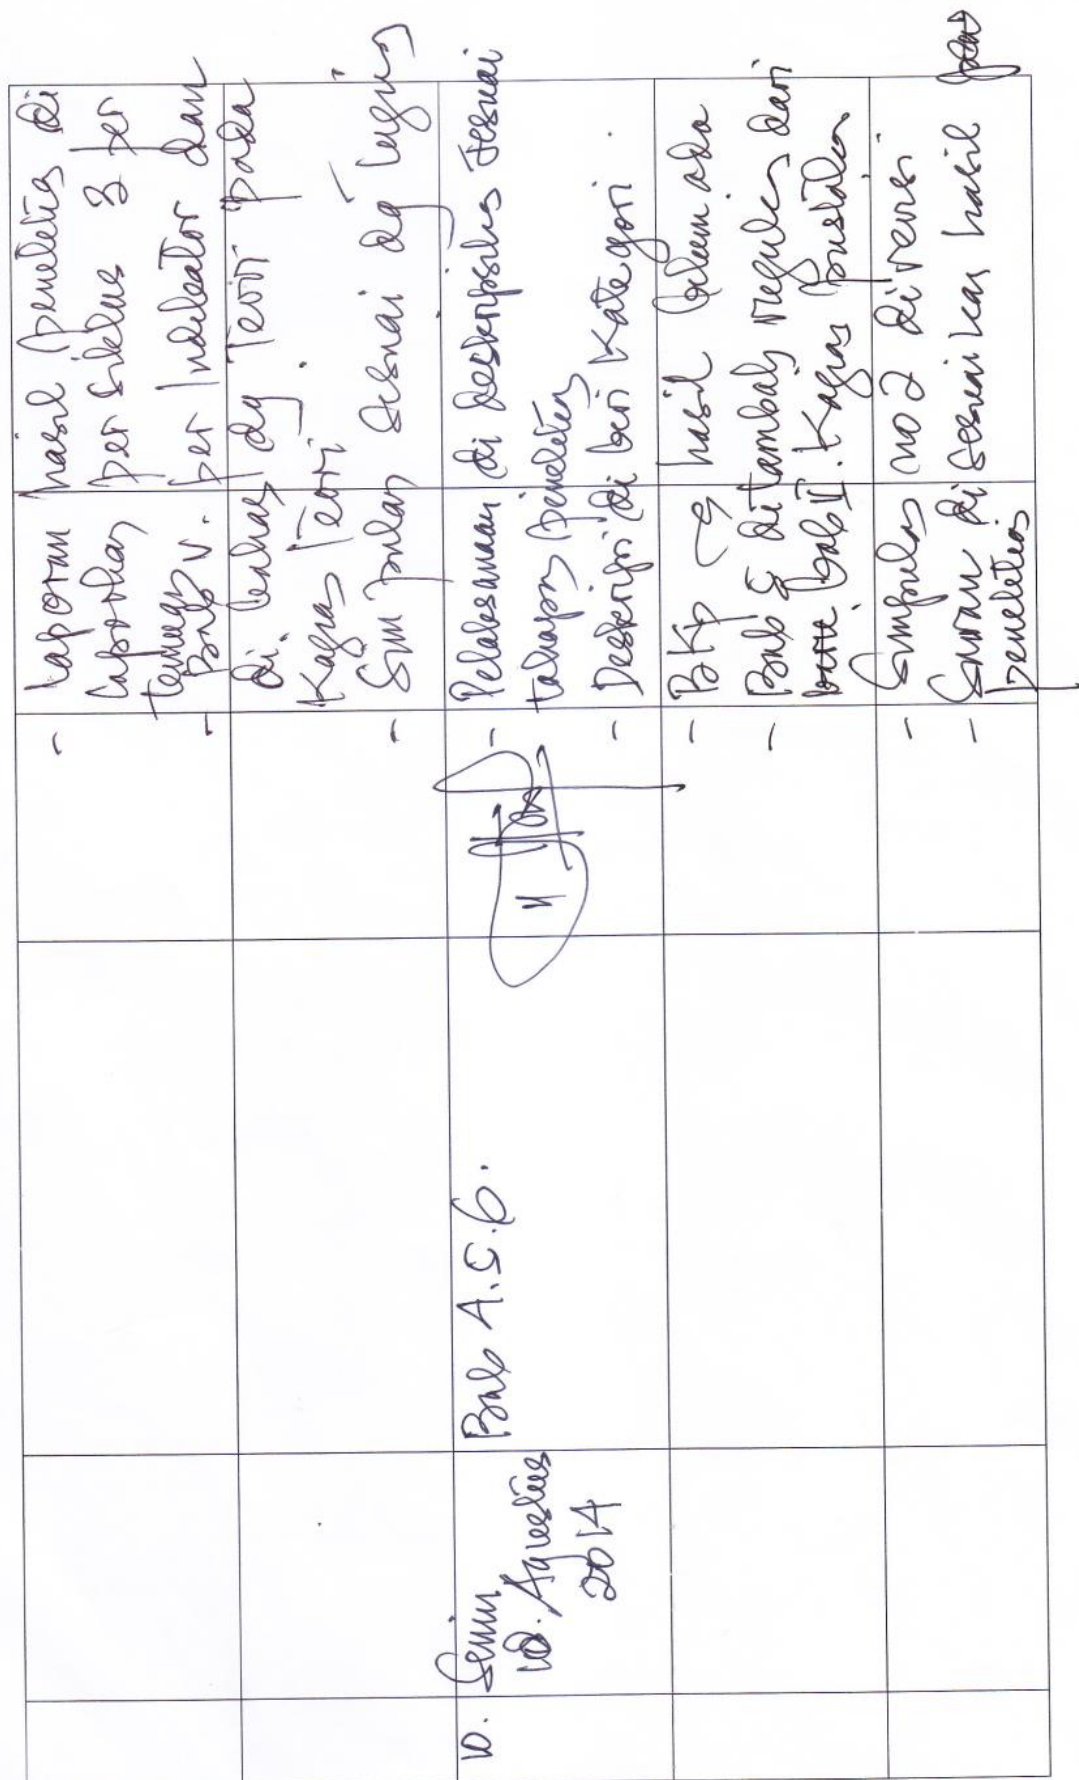 - Laporan hasil peneletia di
laporkan per siklus 3 per
temuan per Indikator dan
- Bab V.
di bahas dg Teori pada
Kajian Teori.
- Simpulan sesuai dg tujuan
10. Senin
Agustus
2014
Bab 4.5.6.
- Pelaksanaan di deskripsikan sesuai
tahapan peneletian
- Deskripsi di beri Kategori.
- hasil belum ada
- Bab 5 di tambah dari
bab II. Kajian pustaka
- Simpulan no 2 di revisi
- Saran di sesuaikan hasil
peneletian